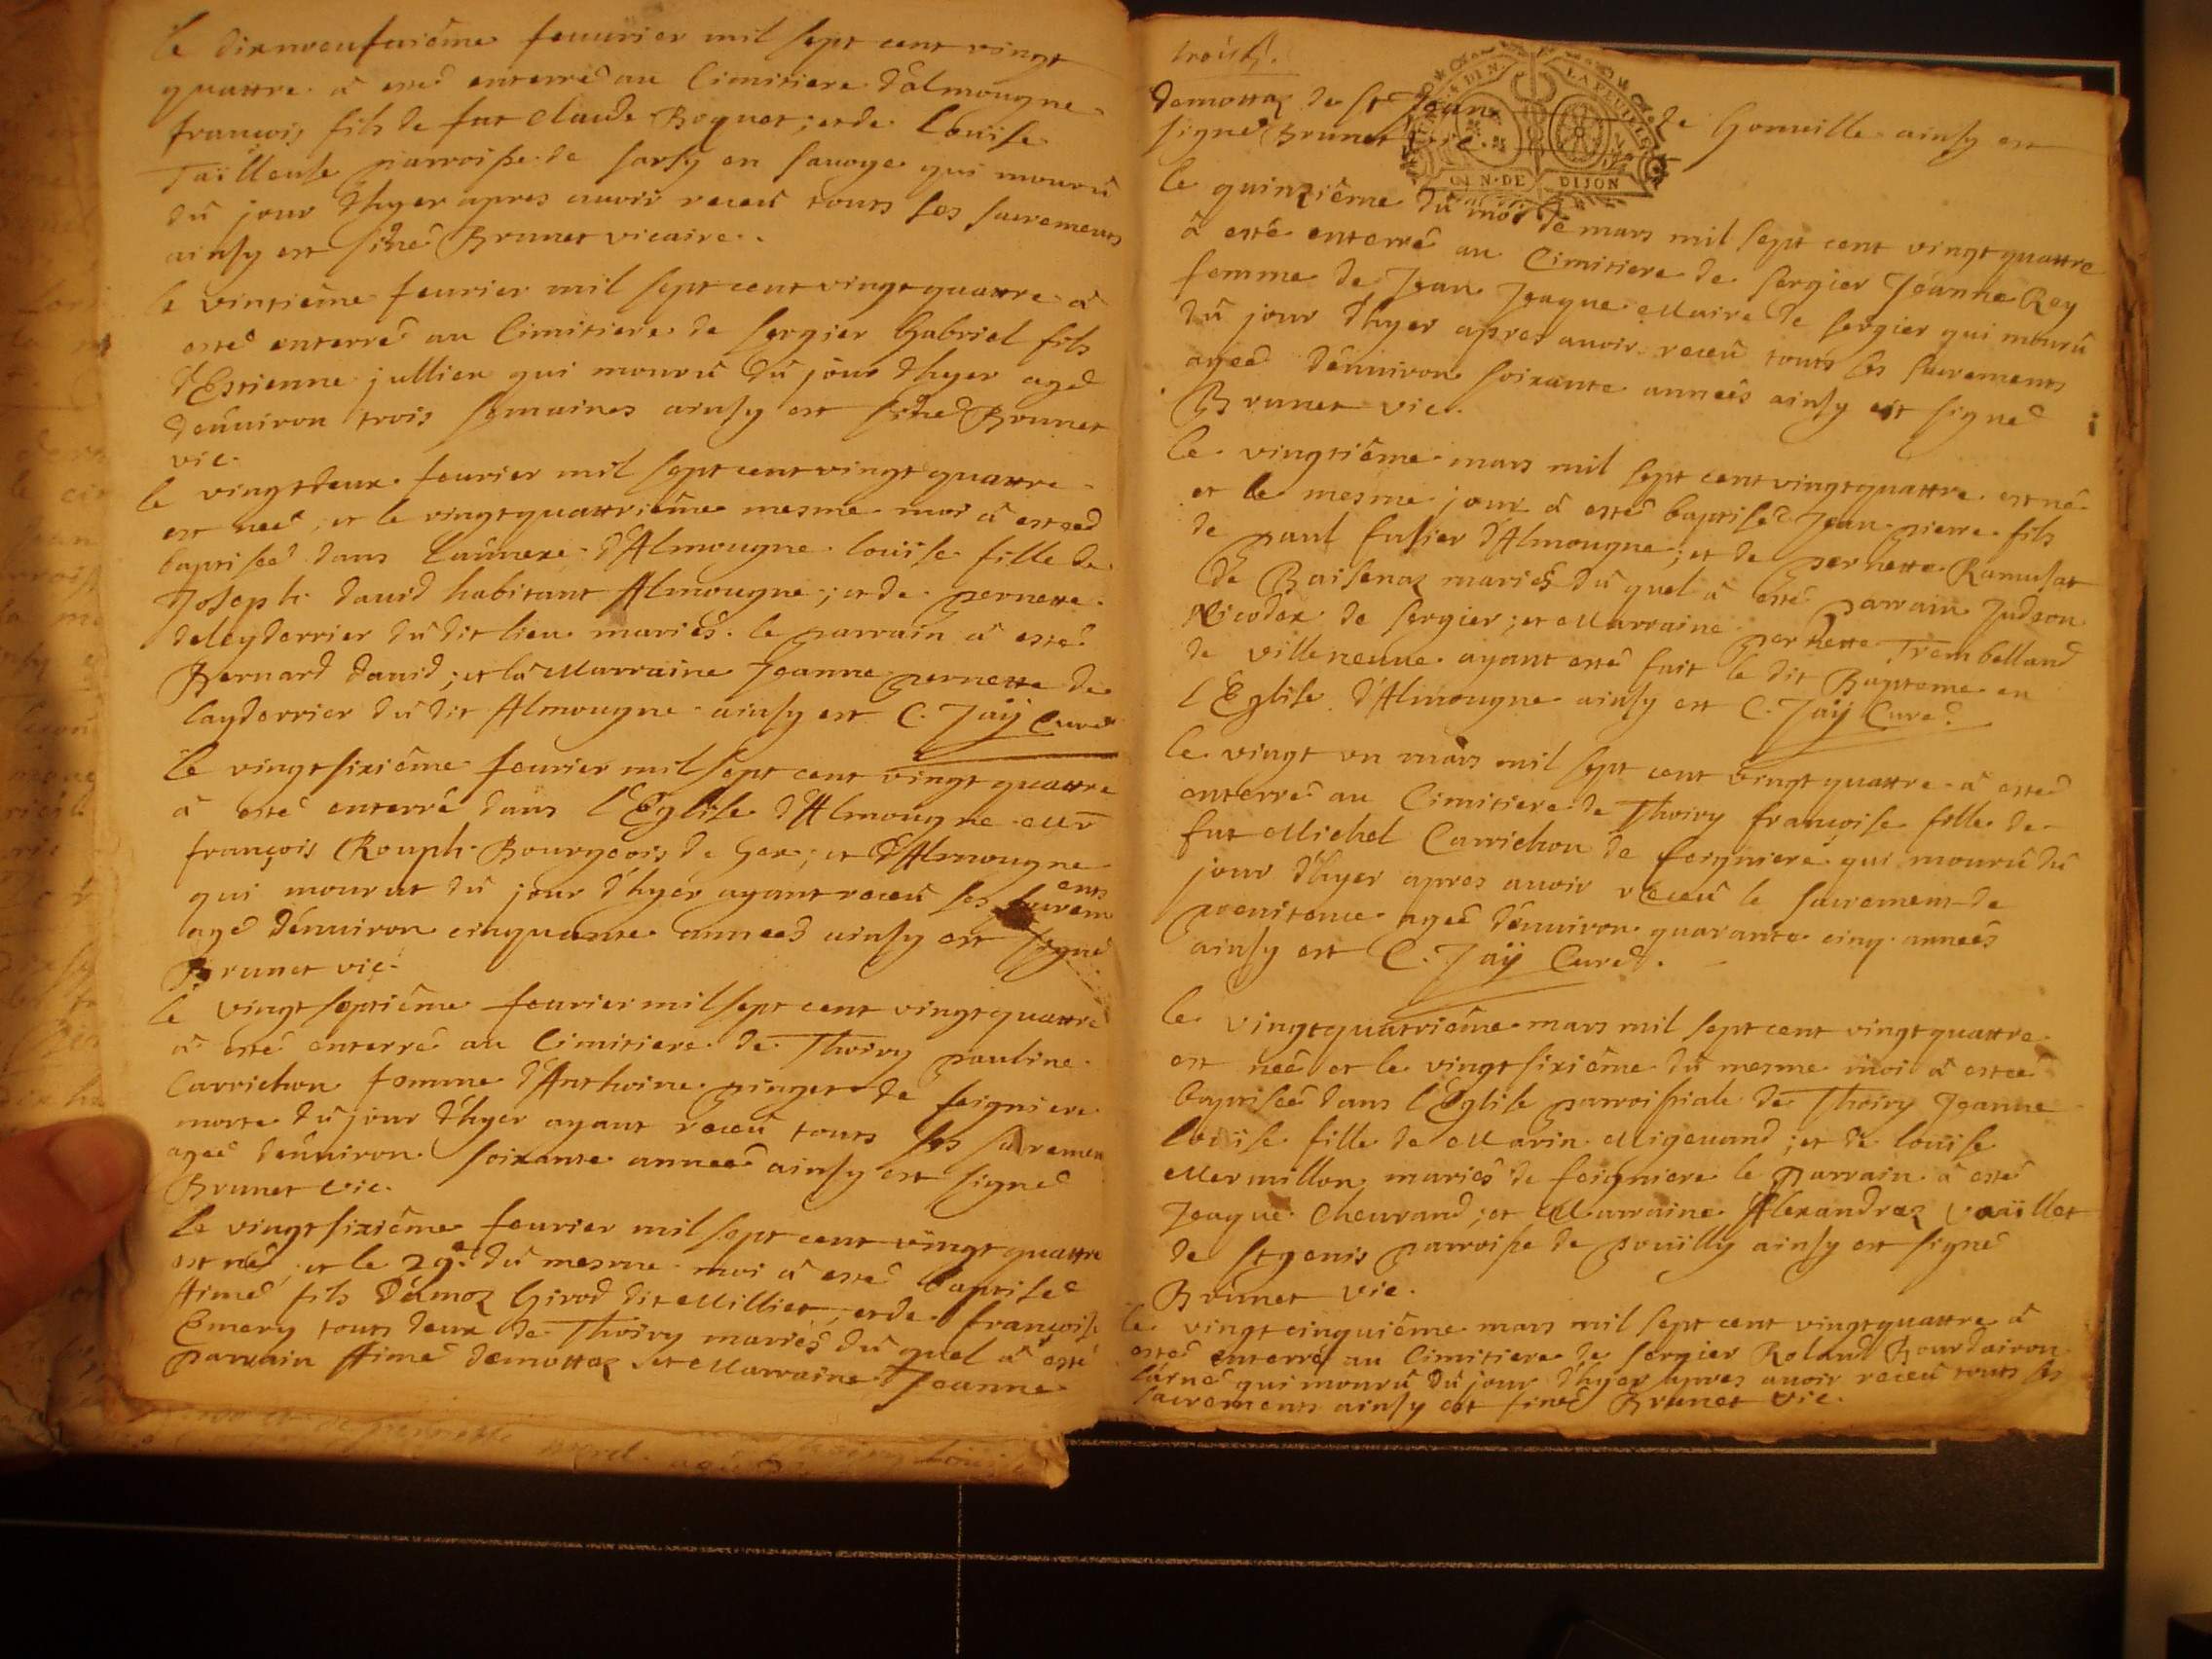 le dixneufuiême feuurier mil sept cent vingt
quattre à esté enterré au Cimitiere d'almougne
françois fils de fut Claude Boquet; et de Louise
Tailleuse parroisse de sarsy en sauoye qui mourû
dû jour d'hyer apres auoir receû touts ses sacrements
ainsy est siné Brunet vicaire.
le vintiême feurier mil sept cent vingt quattre à
esté enterré au Cimitiere de sergier Gabriel fils
d'Estienne jullien qui mourû dû jour d'hyer agé
d'enuiron trois semaines ainsy est siné Brunet
vic.
le vingtdeux feurier mil sept cent vingt quattre
est neé, et le vingtquattriême mesme moi à esteé
baptiseé dans l'annexe d'Almougne louise fille de
Joseph dauid habitant Almougne; et de pernette
deleyderrier dû dit lieu mariés. le parrain à esté
Bernard dauid; et la Marraine Jeanne pernette de
layderrier dû dit Almougne ainsy est C. Jaÿ Curé
le vingtsixiême feurier mil sept cent vingt quattre
à esté enterré dans l'Eglise d'Almougne Mr
françois Rouph Bourgeois de Gex; et d'Almougne
qui mourut dû jour d'hyer ayant receû ses sacrem ents
agé d'enuiron cinquante anneés ainsy est signé
Brunet vic.
le vingtseptiême feurier mil sept cent vingtquattre
à esté enterré au Cimitiere de Thoiry pauline
Carrichon femme d'Anthoine pinget de feigniere
morte dû jour d'hyer ayant receû touts ses sacremen
ageé d'enuiron soixante anneé ainsy est signé
Brunet vic.
le vingtsixiême feurier mil sept cent vingt quattre
est né, et le 29e. dû mesme moi à esté baptisé
Aimé fils d'émoz Girod dit Milliet, et de françoise
Emery touts deux de Thoiry mariés dû quel à esté
parrain Aimé demottaz et Marraine Jeanne
demottaz de St Jean de Gonuille ainsy est
signé Brunet vic.
GEN. DE DIJON
le quinziême dû moi de mars mil sept cent vingtquattre
à esté enterré au Cimitiere de sergier Jeanne Rey
femme de Jean Jaque Maire de sergier qui mourû
dû jour d'hyer apres auoir receû touts ses sacrements
ageé d'enuiron soixante anneés ainsy est signé
Brunet vic.
le vingtiême mars mil sept cent vingtquattre est né
et le mesme jour à esté baptisé Jean pierre fils
de paul fusier d'Almougne; et de pernette Ramusat
de Baisenaz mariés dû quel à esté parrain Judson
Nicodex de sergier; et Marraine pernette Trembelland
de villeneuue ayant esté fait le dit Bapteme en
l'Eglise d'Almougne ainsy est C. Jaÿ Curé.
le vingt vn mars mil sept cent vingt quattre à esté
enterré au Cimitiere de Thoiry françoise fille de
fut Michel Carrichon de feigniere qui mourû dû
jour d'hyer apres auoir receû le sacrement de
poenitence ageé d'enuiron quarante cinq anneés
ainsy est C. Jaÿ Curé.
le vingtquatriême mars mil sept cent vingtquattre
est neé et le vingtsixiême dû mesme moi à esteé
baptiseé dans l'Eglise parroissiale de Thoiry Jeanne
louise fille de Marin Migeuand; et de louise
Mermillon mariés de feigniere le parrain à esté
Jaque Cheurand; et Marraine Alexandraz vaüillet
de St genis parroisse de poüilly ainsy est signé
Brunet vic.
le vingtcinquiême mars mil sept cent vingtquattre à
esté enterré au Cimitiere de sergier Roland Bourdairon
qui mourû dû jour d'hyer apres auoir receû touts ses
sacrements ainsy est siné Brunet vic.